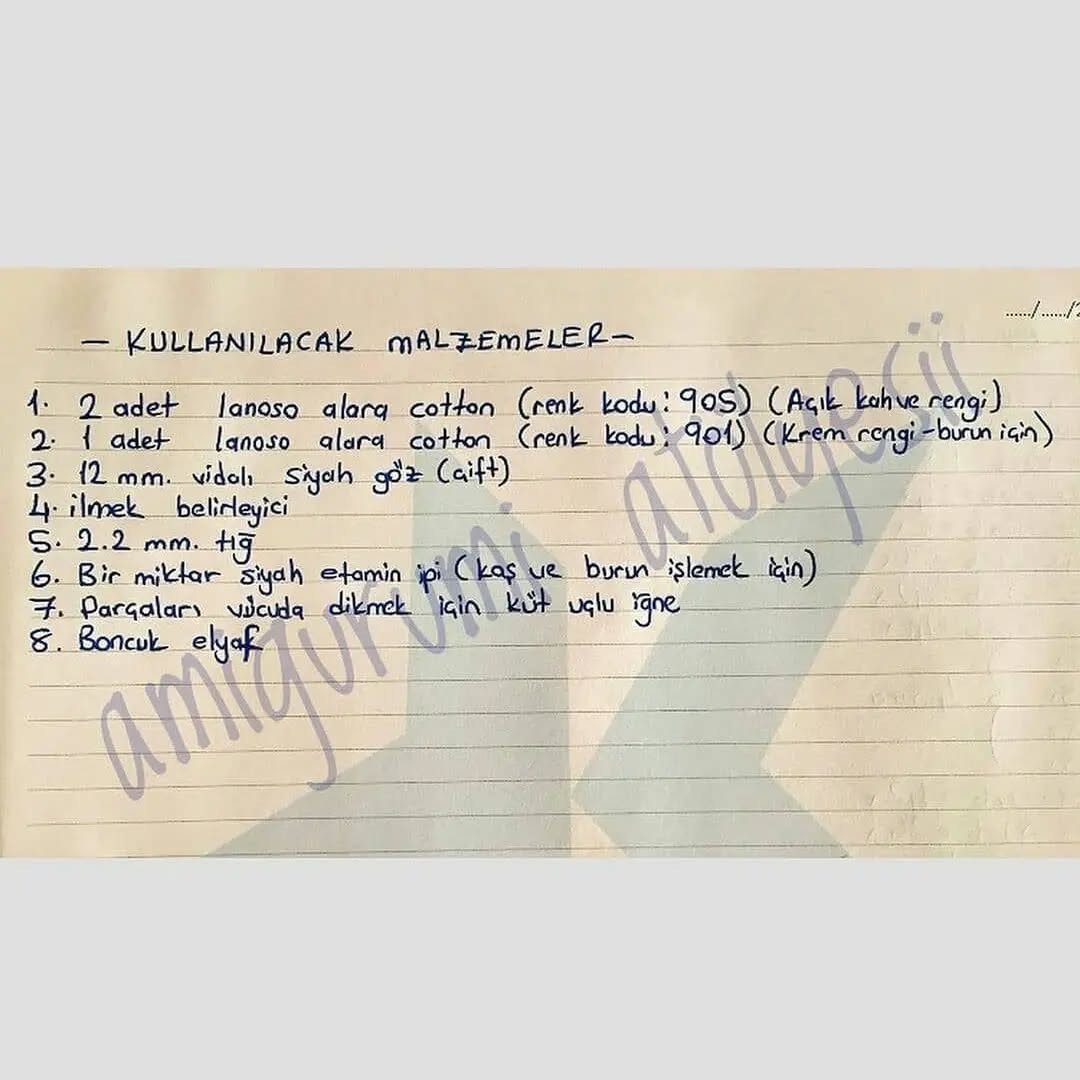 ....../....../2
- KULLANILACAK MALZEMELER -
1. 2 adet lanoso alara cotton (renk kodu: 905) (Açık kahve rengi)
2. 1 adet lanoso alara cotton (renk kodu: 901) (Krem rengi-burun için)
3. 12 mm. vidalı siyah göz (çift)
4. ilmek belirleyici
5. 2.2 mm. tığ
6. Bir miktar siyah etamin ipi (kaş ve burun işlemek için)
7. Parçaları vücuda dikmek için küt uçlu iğne
8. Boncuk elyaf
amigurumi atolyesii